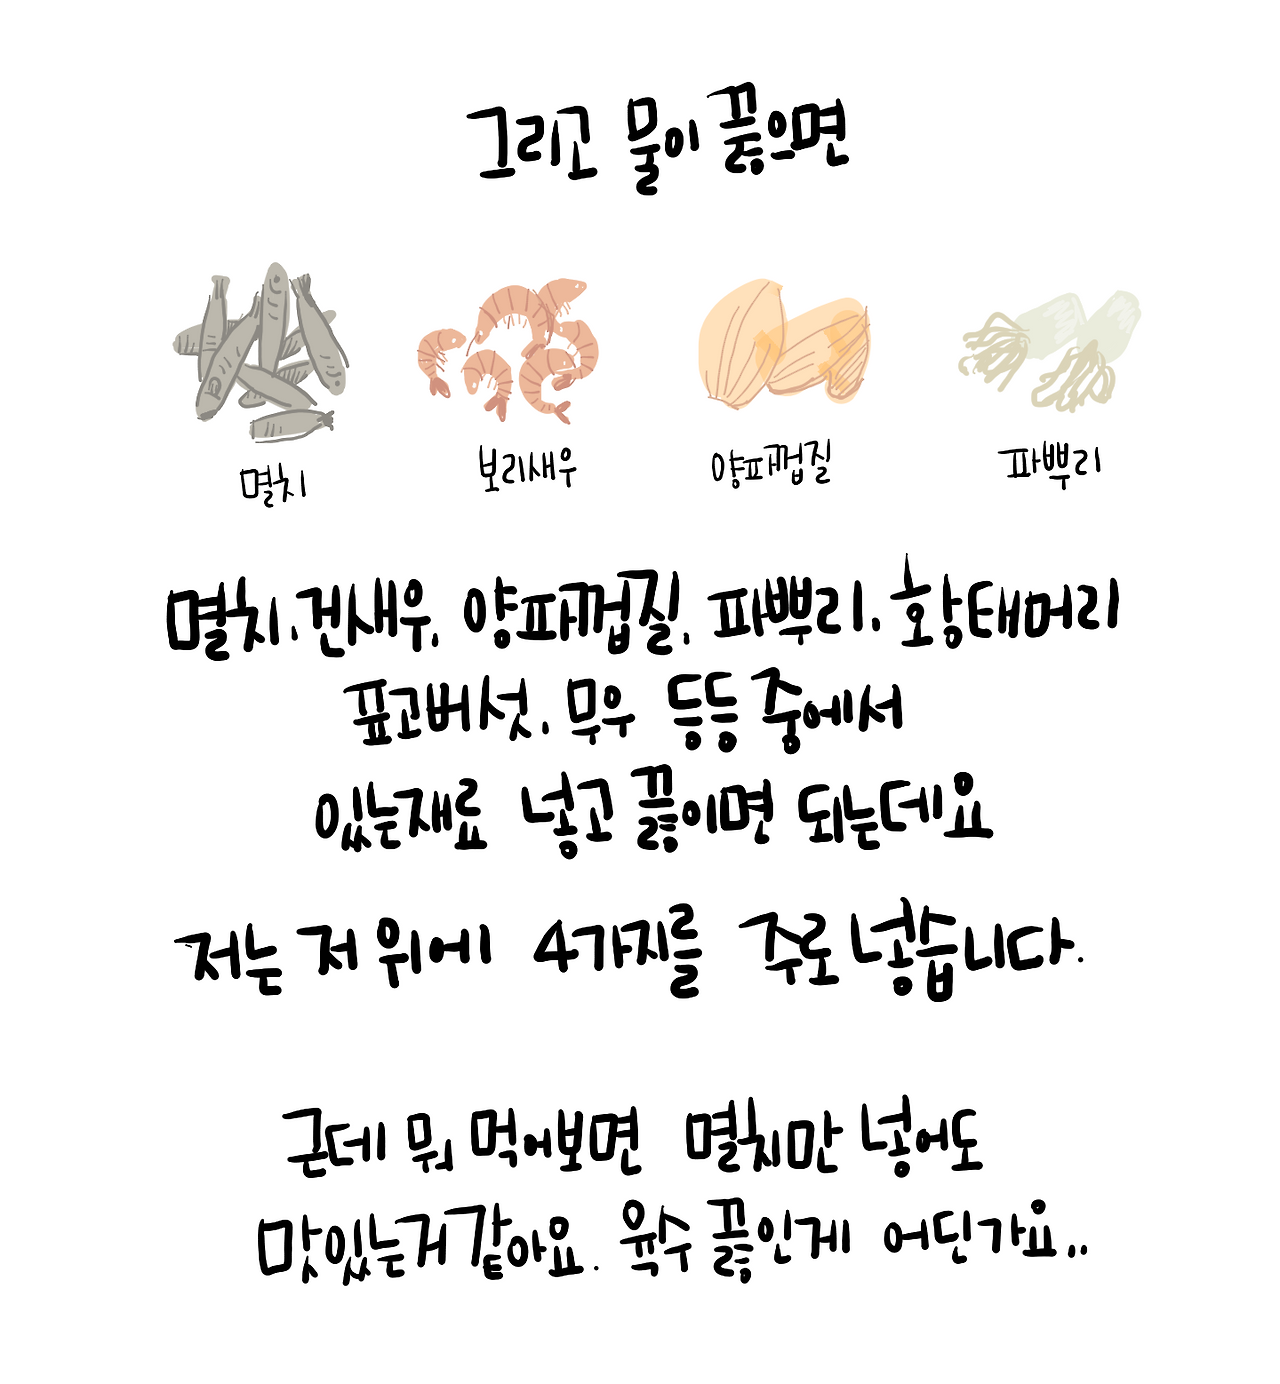 그리고 물이 끓으면
멸치
보리새우
양파껍질
파뿌리
멸치, 건새우, 양파껍질, 파뿌리, 황태머리
표고버섯, 무우 등등 중에서
있는재료 넣고 끓이면 되는데요
저는 저 위에 4가지를 주로 넣습니다.
근데 뭐 먹어보면 멸치만 넣어도
맛있는거 같아요. 육수 끓인게 어딘가요..